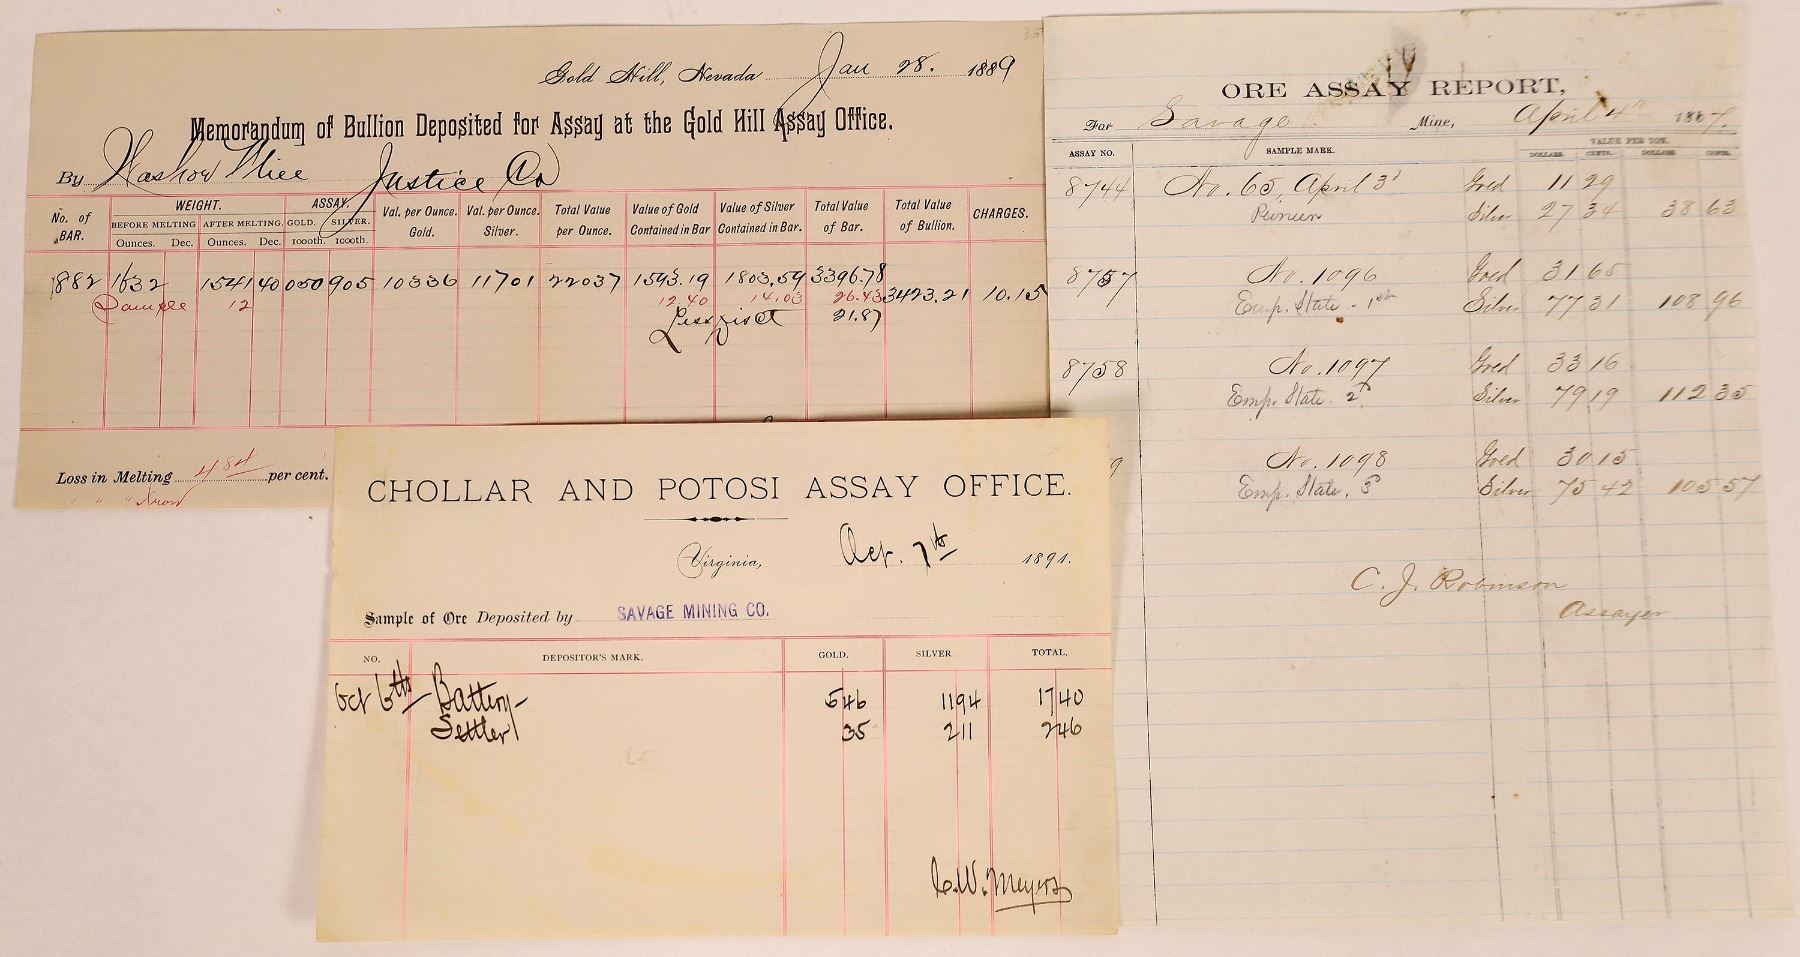 Gold Hill, Nevada Jan 28. 1889
Memorandum of Bullion Deposited for Assay at the Gold Hill Assay Office.
By Justice Co
No. of BAR. WEIGHT. ASSAY. Val. per Ounce. Gold. Val. per Ounce. Silver. Total Value per Ounce. Value of Gold Contained in Bar Value of Silver Contained in Bar. Total Value of Bar. Total Value of Bullion. CHARGES.
BEFORE MELTING AFTER MELTING. GOLD. SILVER.
Ounces. Dec. Ounces. Dec. 1000th. 1000th.
1882 1632 1541 40 050 905 10336 11701 22037 1593.19 1803.59 3396.78
Sample 12 12.40 14.03 26.43 3423.21 10.15
21.87
Loss in Melting 4 84 per cent.
" " "
CHOLLAR AND POTOSI ASSAY OFFICE.
Virginia, Oct. 7th 1891.
Sample of Ore Deposited by SAVAGE MINING CO.
NO. DEPOSITOR'S MARK. GOLD. SILVER. TOTAL.
Oct 6th - Battery - 5 46 11 94 17 40
Settler 35 2 11 2 46
C.W. Meyers
ORE ASSAY REPORT,
For Savage Mine, April 4th 1867.
ASSAY NO. SAMPLE MARK. VALUE PER TON.
DOLLARS. CENTS. DOLLARS. CENTS.
8744 No. 65, April 3d Gold 11 29
Silver 27 34 38 63
8757 No. 1096 Gold 31 65
Emp. State - 1st Silver 77 31 108 96
8758 No. 1097 Gold 33 16
Emp. State 2d Silver 79 19 112 35
9 No. 1098 Gold 30 15
Emp. State, 3d Silver 75 42 105 57
C. J. Robinson
Assayer